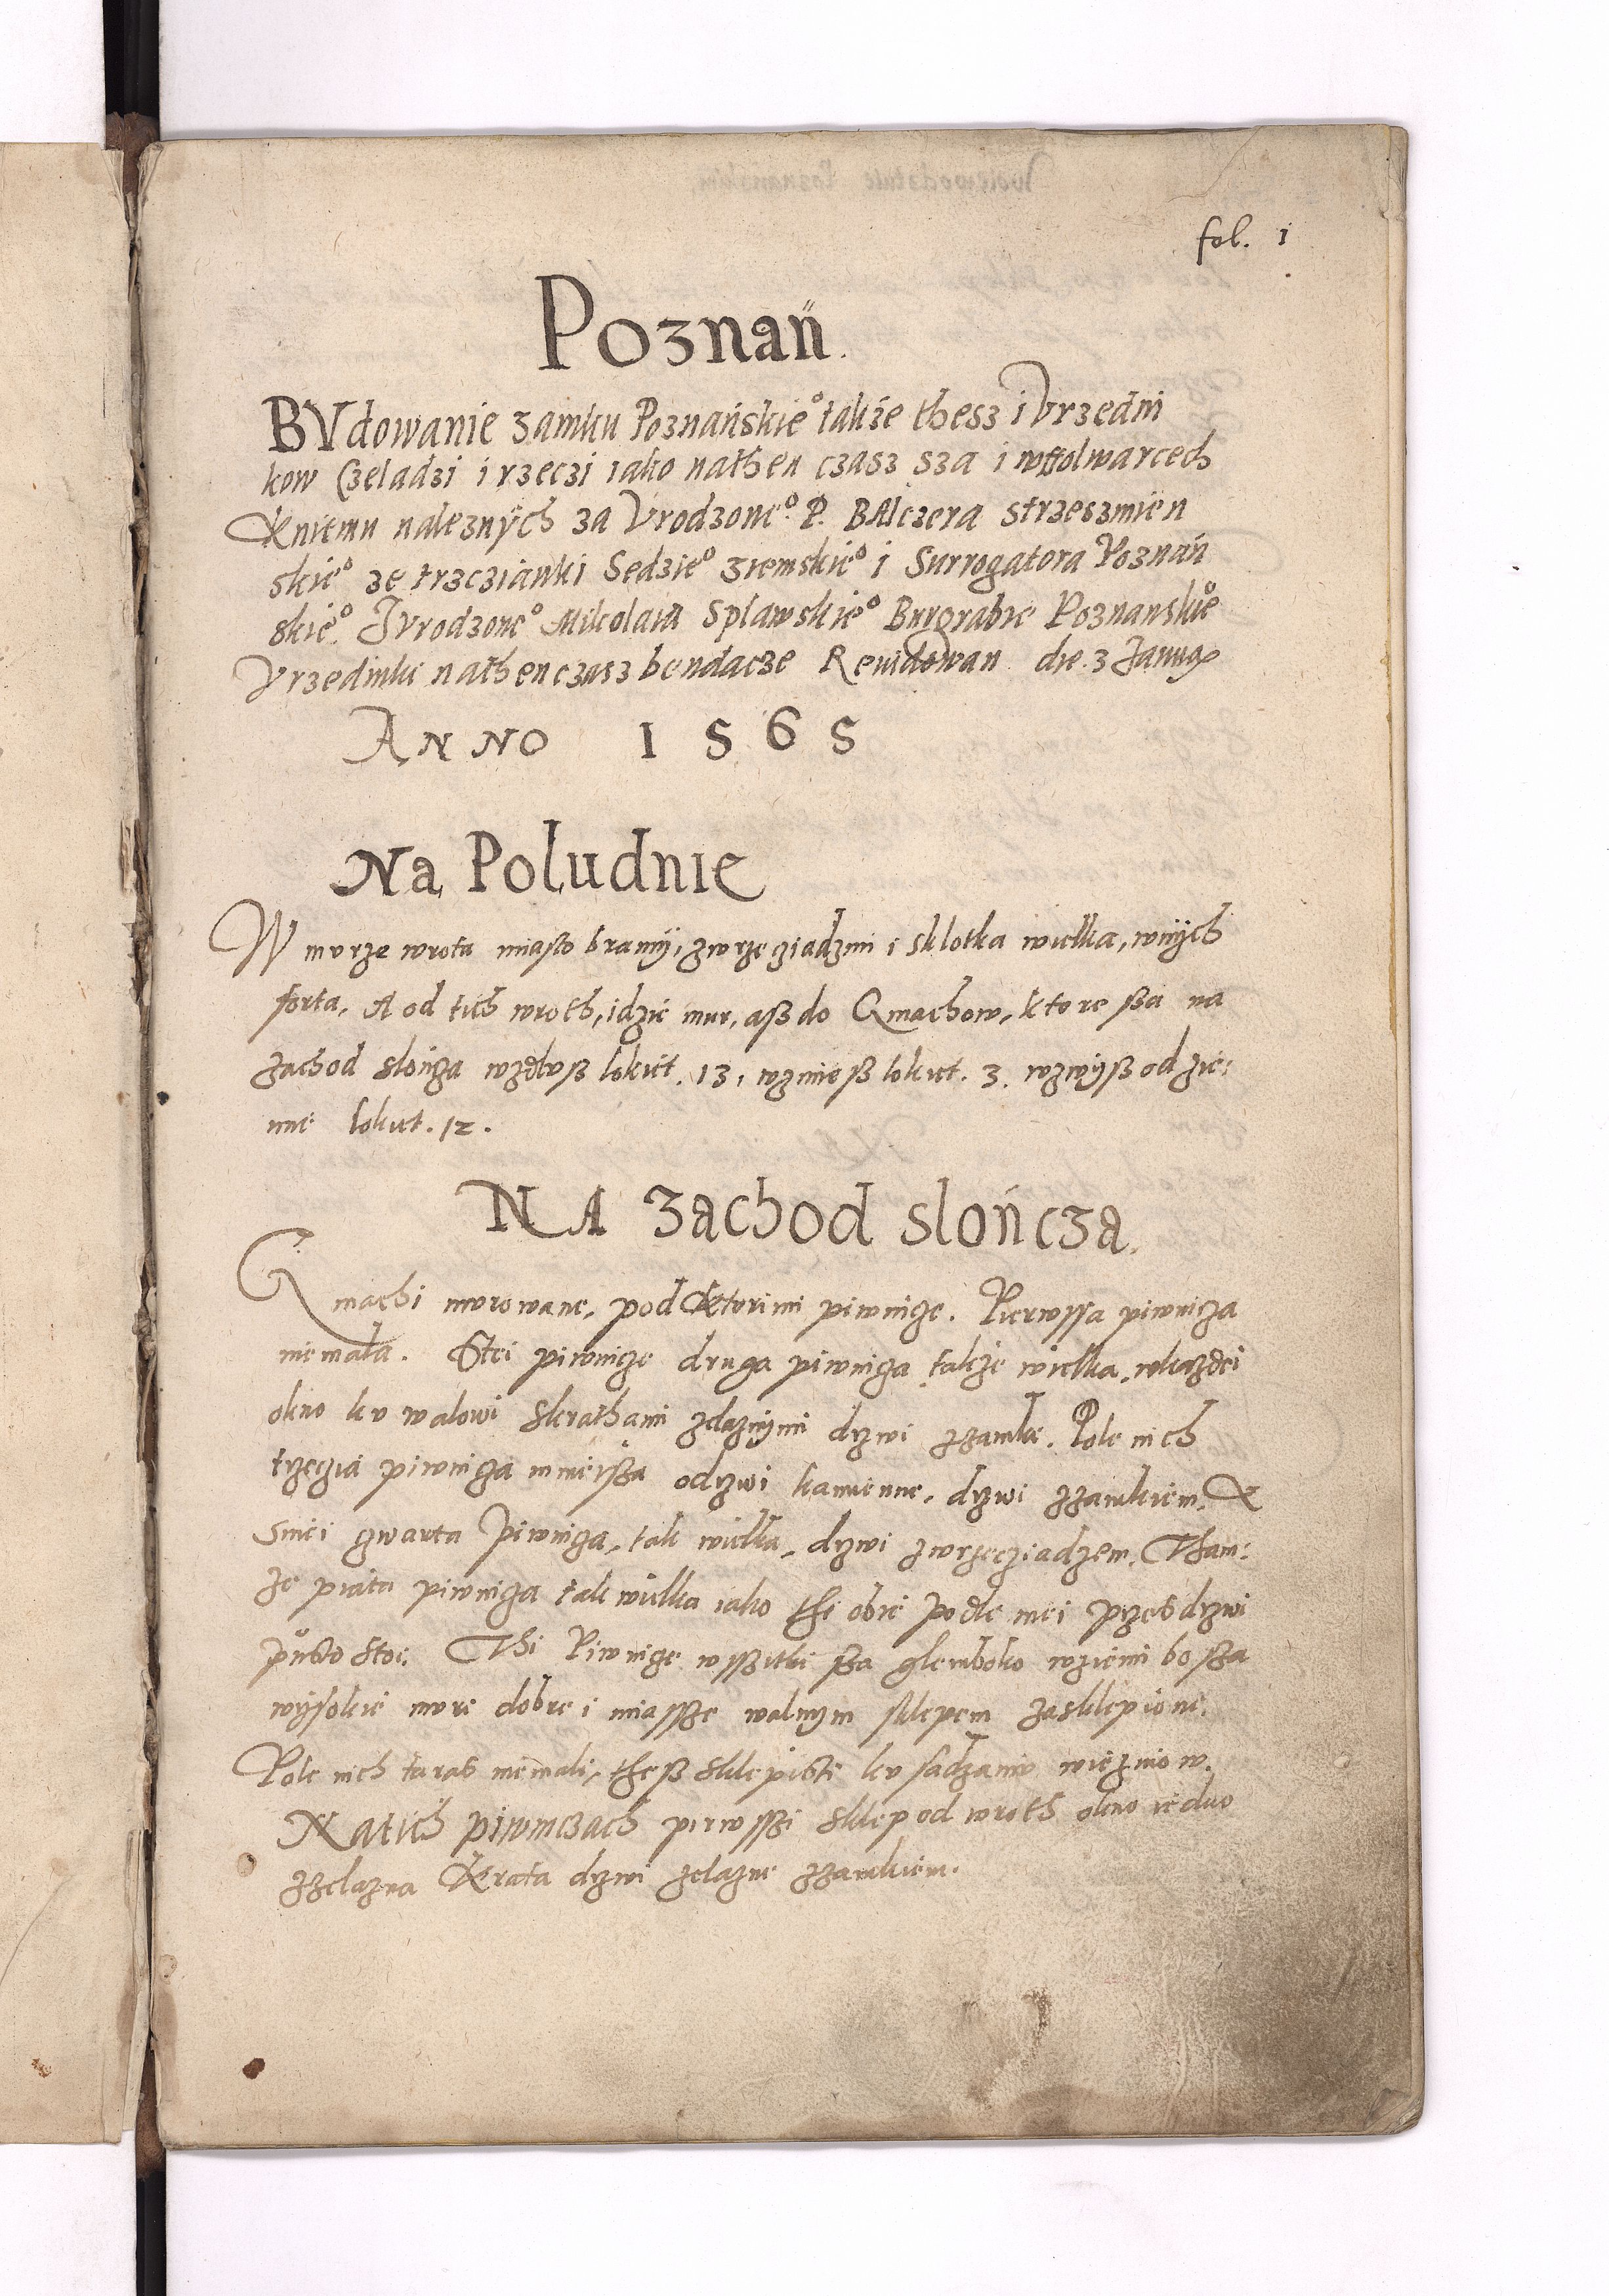 fol. 1
Poznań.
BVdowanie zamku Poznańskieº takze thesz i Vrzedni
kow Czeladzi i rzeczi iako nathen czasz sza i wffolwarcech
kniemu naleznÿch za Vrodzoneº. P. BAlczera strzeszmien
skieº ze trzczianki Sedzieº ziemskieº i Surrogatora Poznań
skieº. I Vrodzoneº Mikolaia Splawskieº Burgrabie Poznanskieº
Vrzednika nathenczasz bendacze Reuidowan die. 3 Januarii
ANNO 1565
Na Poludnie
W murze wrota miasto bramÿ, zwrzecziadzmi i sklotka wielka, wnÿch
forta, A od tich wroth, idzie mur, asz do Gmachow, ktore sza na
zachod slończa wzdlusz lokiet. 13, wzmiesz lokiet. 3. wzwÿsz od zie:
mie lokiet. 12.
NA zachod slończa.
Gmachi murowane, pod ktorimi piwnicze. Pierwssa piwnicza
niemała. Stei piwnicze druga piwnicza takze wielka, wkazdei
okno ku walowi skrathami zelaznÿmi drzwi zzamki. Pole nich
trzeczia piwnicza mnieÿsza odrzwi kamienne, drzwi zzamkiem. &
Sniei czwarta piwnicza, tak wielka, drzwi zwrzecziadzem. Tham:
ze piata piwnicza tak wielka iako thi obie podle niei przes drzwi
pusto stoi. Thi Piwnicze wsszitki sza glemboko wziemi bo sza
wÿsokie muri dobre i miassze walnym sklepem zasklepione.
Pole nich taras niemali, thesz sklepisti ku sadzaniu wiezniow.
Natich piwniczach pirwsszi sklep od wroth okno iedno
zzelazna krata drzwi zelazne zzamkiem.